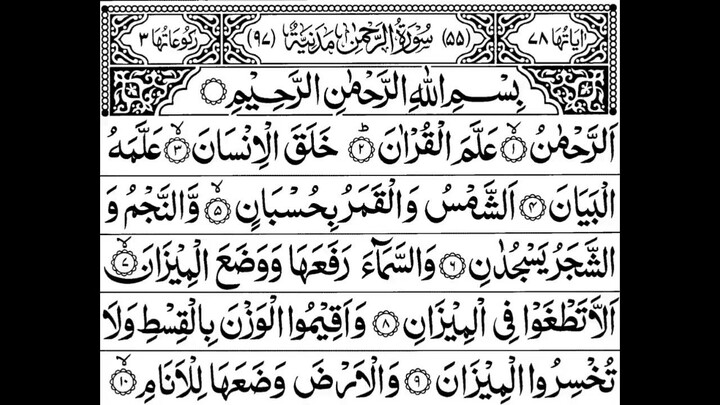 اٰیَاتُهَا ٧٨ (٥٥) سُوْرَةُ الرَّحْمٰنِ مَدَنِیَّةٌ (٩٧) رُكُوْعَاتُهَا ٣
بِسْمِ اللّٰهِ الرَّحْمٰنِ الرَّحِیْمِ
اَلرَّحْمٰنُ ۙ﴿١﴾ عَلَّمَ الْقُرْاٰنَ ؕ﴿٢﴾ خَلَقَ الْاِنْسَانَ ۙ﴿٣﴾ عَلَّمَهُ
الْبَیَانَ ﴿٤﴾ اَلشَّمْسُ وَالْقَمَرُ بِحُسْبَانٍ ۙ﴿٥﴾ وَّالنَّجْمُ وَ
الشَّجَرُ یَسْجُدٰنِ ﴿٦﴾ وَالسَّمَآءَ رَفَعَهَا وَوَضَعَ الْمِیْزَانَ ۙ﴿٧﴾
اَلَّا تَطْغَوْا فِی الْمِیْزَانِ ﴿٨﴾ وَاَقِیْمُوا الْوَزْنَ بِالْقِسْطِ وَلَا
تُخْسِرُوا الْمِیْزَانَ ﴿٩﴾ وَالْاَرْضَ وَضَعَهَا لِلْاَنَامِ ۙ﴿١٠﴾